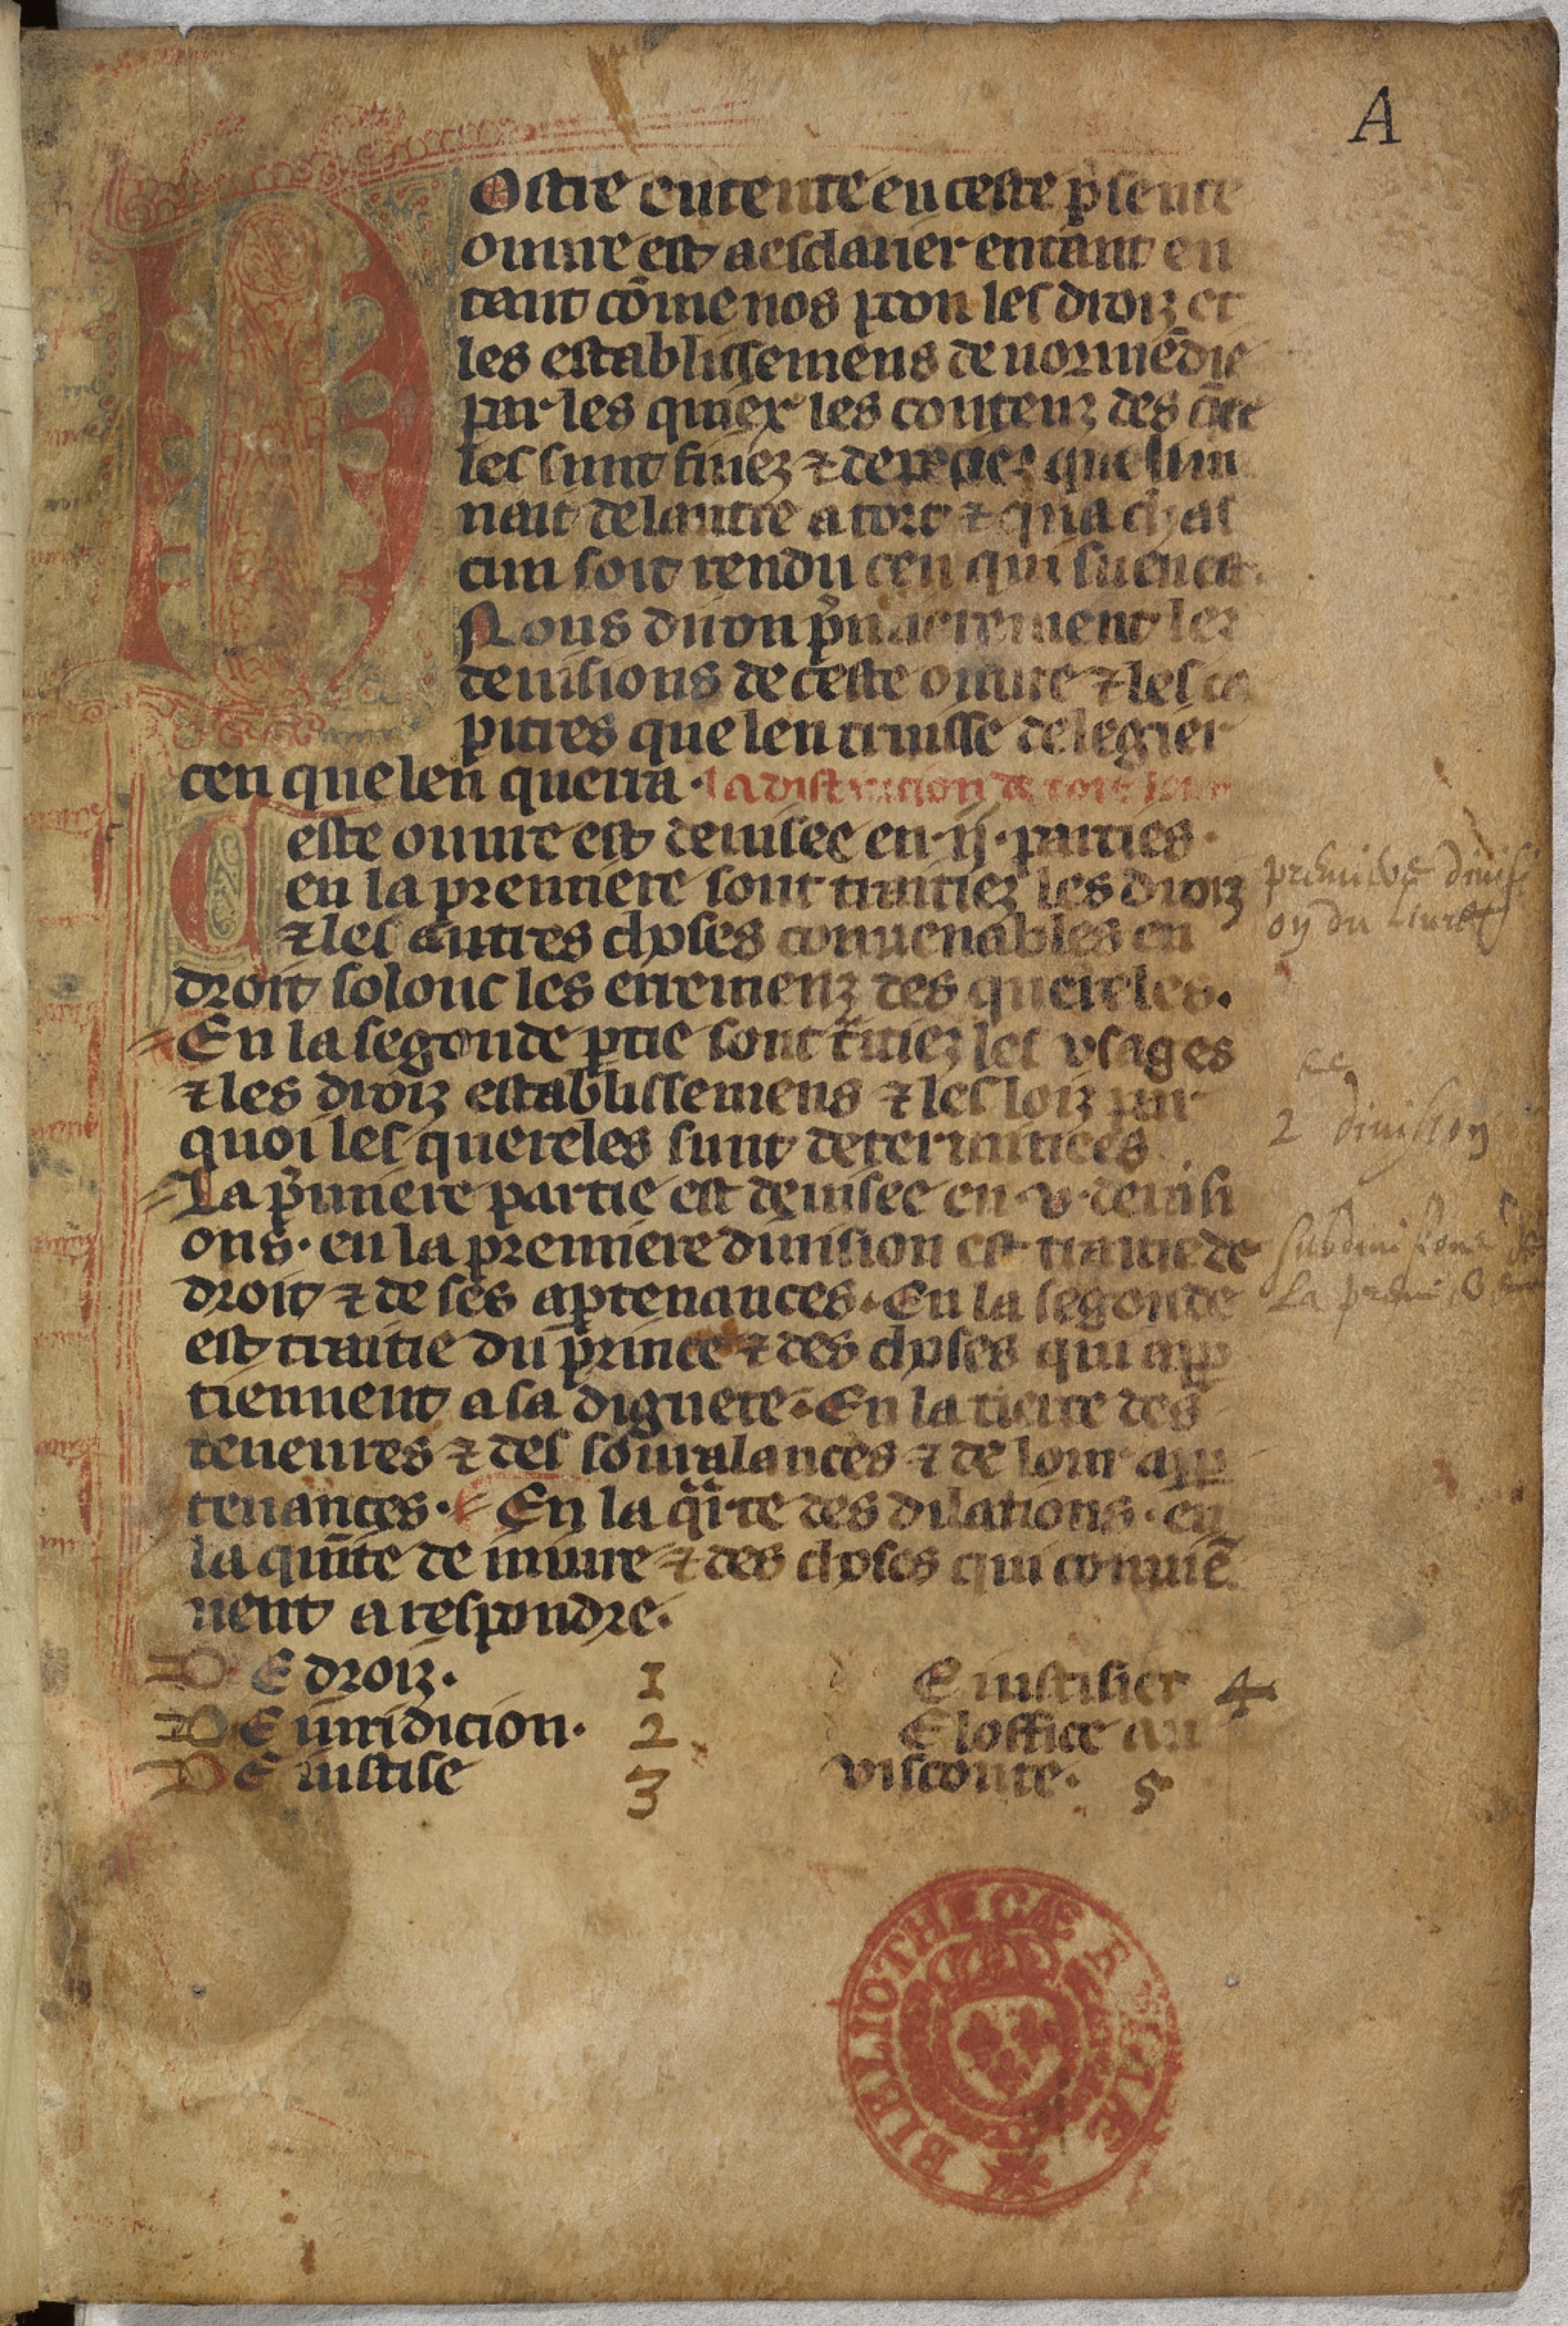 A
Nostre entente en ceste p̃sente
ouure est a esclarier entant en
tant cõme nos pron les droiz et
les establissemens de normẽdie
par les quiex les contenz des q̃re
les sunt finez ⁊ depeciez que lun
nait de lautre a tort ⁊ qua chas
cun soit rendu cen qui suen est.
Nous diron p̃mierement les
deuisions de ceste ouure ⁊ les ca
pitres que len truisse de legier
cen que len querra. la distincion de tout
Ceste ouure est deuisee en .ij. parties.
en la premiere sont traitiez les droiz
⁊ les autres choses conuenables en
droit solonc les erremenz des quereles.
En la segonde ptie sont t̃itiez les vsages
⁊ les droiz establissemens ⁊ les loiz par
quoi les quereles sunt determinees
La p̃miere partie est deuisee en .v. deuisi
ons. en la premiere diuision est traitie de
droit ⁊ de ses aptenances. En la segonde
est traitie du prince ⁊ des choses qui app
tiennent a sa dignete. En la tierce des
teneures ⁊ des souralances ⁊ de lour app
tenances. En la q̃rte des dilations. en
la quĩte de iuiure ⁊ des choses qui conuiẽ
nent a respondre.
premiere diuisi
on du liure
2 diuision
subdiuisions de
la premi
DE droiz. 1
DE iuridicion. 2
DE iustise 3
E iustisier 4
E loffice au
visconte. 5
BIBLIOTHECÆ REGIÆ